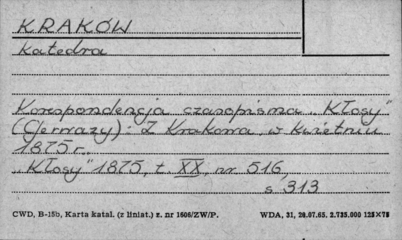 KRAKÓW
Katedra
Korespondencja czasopisma „Kłosy"
(Gerwazy): Z Krakowa, w kwietniu
1875 r.
„Kłosy" 1875, t. XX, nr 516,
s 313
CWD, B-15b, Karta katal. (z liniat.) z. nr 1606/ZW/P. WDA, 31, 20.07.65. 2.735.000 125×75